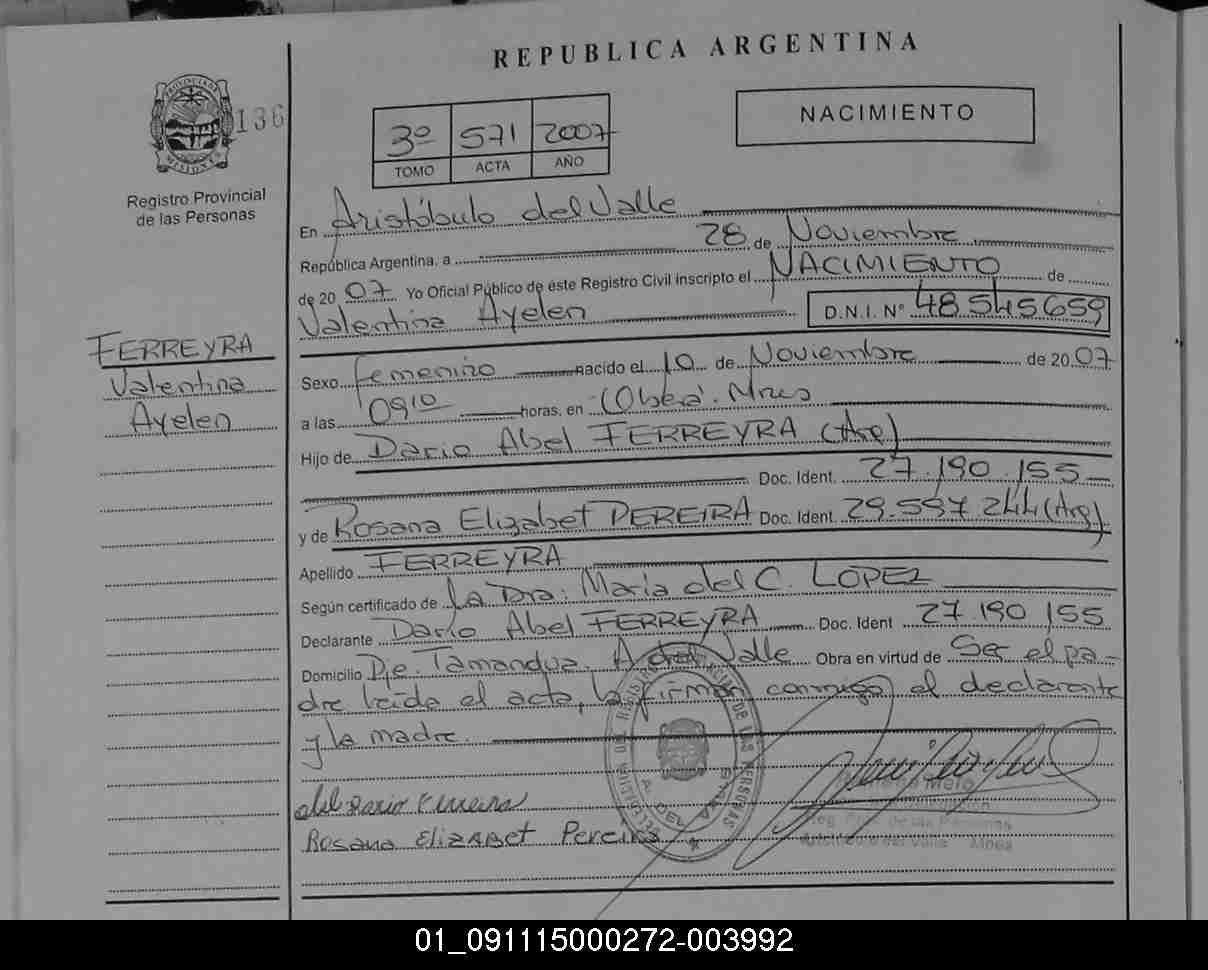 REPUBLICA ARGENTINA
PROVINCIA DE
MISIONES
136
Registro Provincial
de las Personas
3º 571 2007
TOMO ACTA AÑO
NACIMIENTO
En Aristóbulo del Valle
República Argentina, a 28 de Noviembre
de 20 07 Yo Oficial Público de éste Registro Civil inscripto el NACIMIENTO de
Valentina Ayelen D.N.I. Nº 48.545.659
FERREYRA
Valentina
Ayelen
Sexo femenino nacido el 10 de Noviembre de 20 07
a las 09 10 horas, en Oberá. Mnes
Hijo de Dario Abel FERREYRA (Arg)
Doc. Ident. 27.190.155
y de Rosana Elizabet PEREIRA Doc. Ident. 29.597.244 (Arg)
Apellido FERREYRA
Según certificado de La Dra: Maria del C. LOPEZ
Declarante Dario Abel FERREYRA Doc. Ident 27.190.155
Domicilio Pje. Tamandua. A. del Valle Obra en virtud de Ser el pa-
dre leida el acta, la firman conmigo el declarante
y la madre.
Rosana Elizabet Pereira
01_091115000272-003992